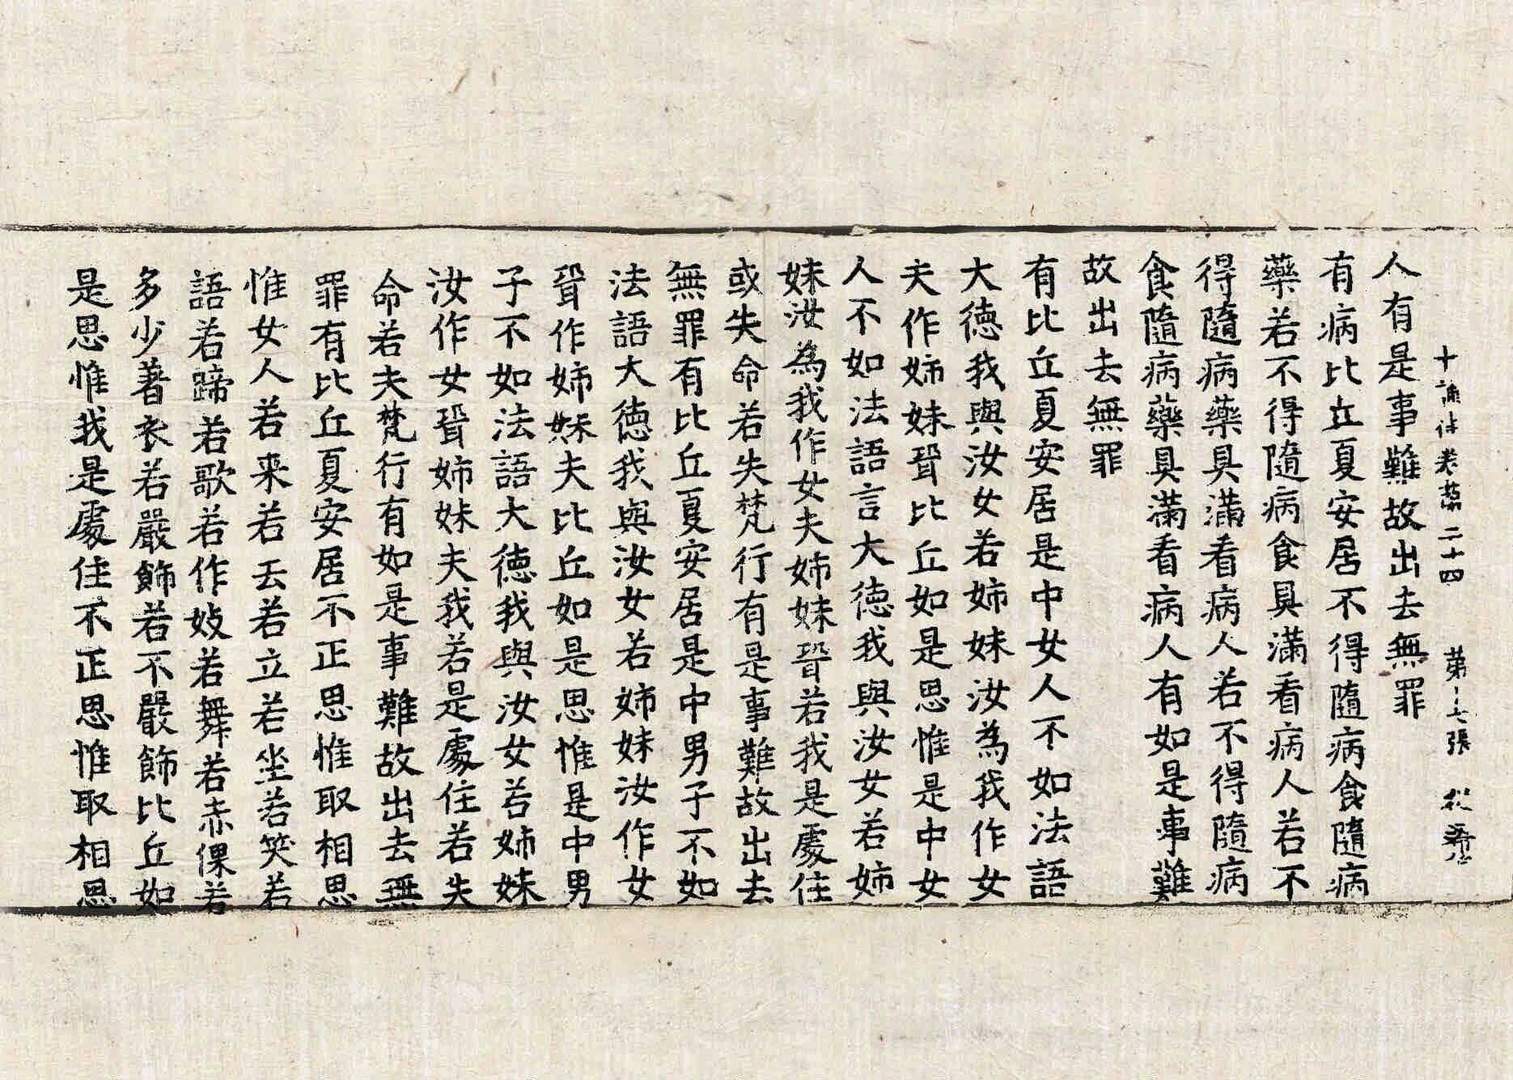 十誦律卷第二十四 第十七張
人有是事難故出去無罪
有病比丘夏安居不得隨病食隨病
藥若不得隨病食具滿看病人若不
得隨病藥具滿看病人若不得隨病
食隨病藥具滿看病人有如是事難
故出去無罪
有比丘夏安居是中女人不如法語
大德我與汝女若姊妹汝為我作女
夫作姊妹聟比丘如是思惟是中女
人不如法語言大德我與汝女若姊
妹汝為我作女夫姊妹聟若我是處住
或失命若失梵行有是事難故出去
無罪有比丘夏安居是中男子不如
法語大德我與汝女若姊妹汝作女
聟作姊妹夫比丘如是思惟是中男
子不如法語大德我與汝女若姊妹
汝作女聟姉妹夫我若是處住若失
命若夫梵行有如是事難故出去無
罪有比丘夏安居不正思惟取相思
惟女人若来若去若立若坐若笑若
語若蹄若歌若作妓若舞若赤倮若
多少著衣若嚴飾若不嚴飾比丘如
是思惟我是處住不正思惟取相思